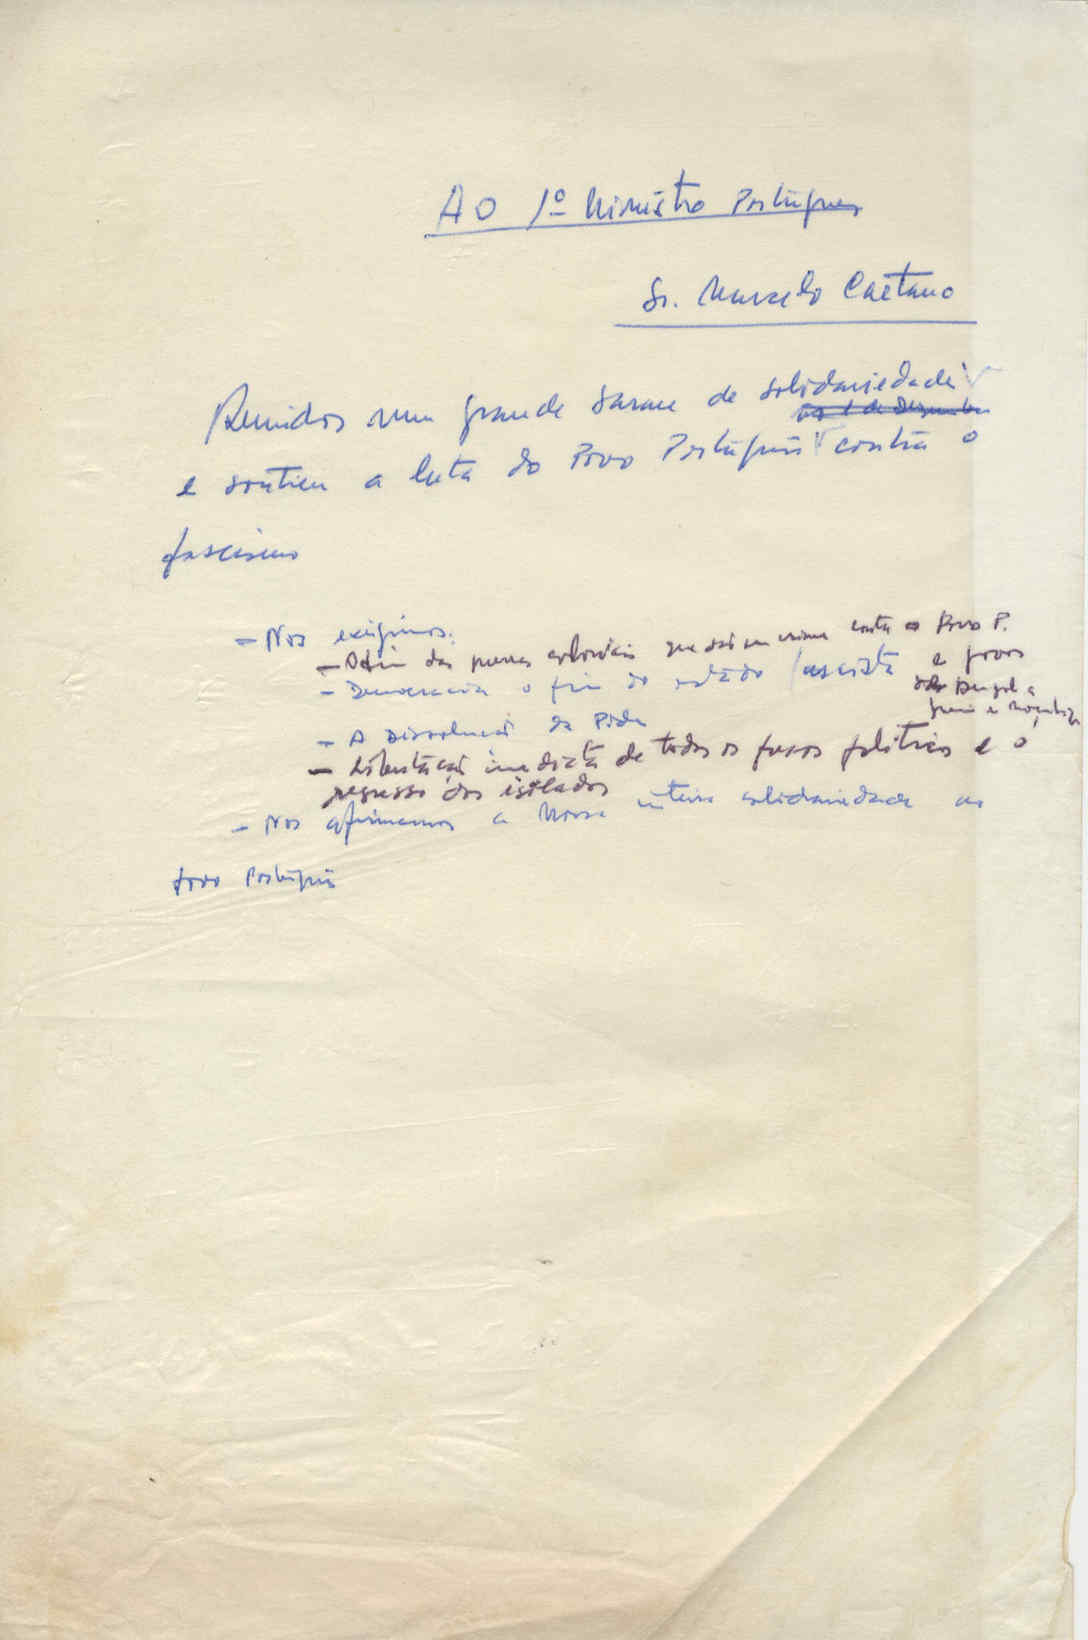 AO 1º Ministro Portugues
Sr. Marcelo Caetano
Reunidos num grande sarau de solidariedade
no 1 de Dezembro
e sontien a luta do Povo Português contra o
fascismo
- Nos exigimos:
- O fim das guerras coloniais que são um crime contra o Povo P.
e povos
- Democracia o fim do estado fascista
de Angola
Guiné e Moçambiq
- A Dissolução da Pide
- Libertação imediata de todos os presos politicos e o
regresso dos exilados
- Nos afirmamos a Nossa inteira solidariedade ao
Povo Português